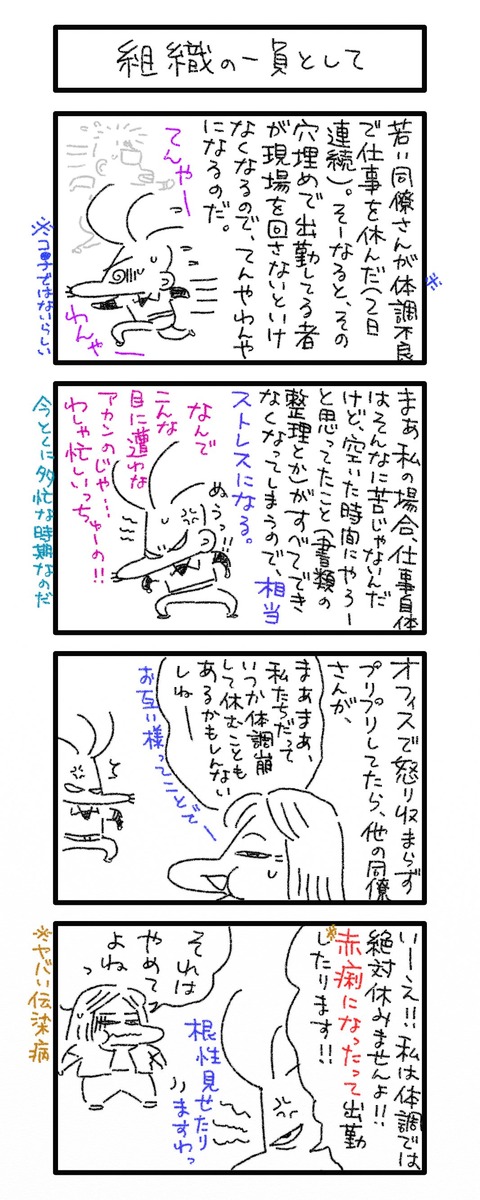 組織の一員として
若い同僚さんが体調不良
※
で仕事を休んだ(2日
連続)。そーなると、その
穴埋めで出勤してる者
が現場を回さないといけ
なくなるので、てんやわんや
になるのだ。
てんやー
わんやー
※コロ子ではないらしい
まあ私の場合、仕事自体
はそんなに苦じゃないんだ
けど、空いた時間にやろー
と思ってたこと(書類の
整理とか)がすべてでき
なくなってしまうので、相当
ストレスになる。
ぬぅっ!!
なんで
こんな
目に遭わな
アカンのじゃ…
わしゃ忙しいっちゅーの!!
今とくに多忙な時期なのだ
オフィスで怒り収まらず
プリプリしてたら、他の同僚
さんが、
まあまあ、
私たちだって
いつか体調崩
して休むことも
あるかもしんない
しねー
お互い様ってことでー
いーえ!!私は体調では
絶対休みませんよ!!
※
赤痢になったって出勤
したります!!
根性見せたり
ますわっ
それは
やめて
よねっ
※ヤバい伝染病